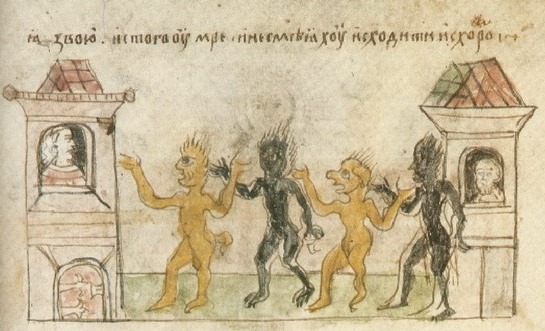 ꙗзвою. и с того оумре. и не смѣꙗхоу исходити исхоро